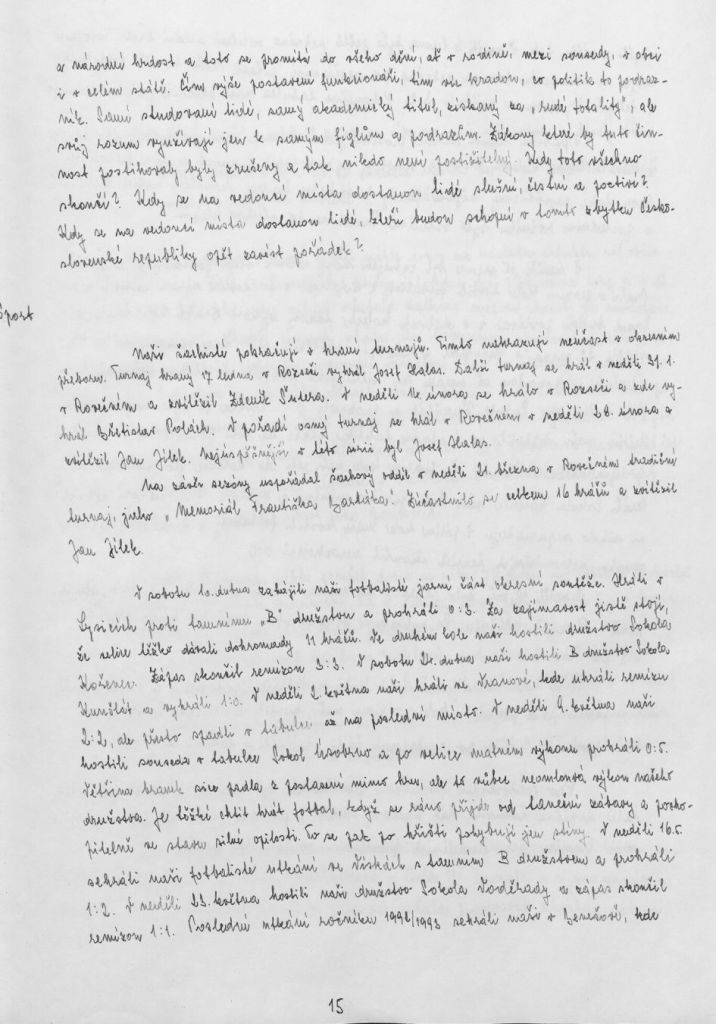 a národní hrdost a toto se promítá do všeho dění, ať v rodině, mezi sousedy, v obci
i v celém státě. Čím výše postavení funkcionáři, tím víc kradou, co politik to podraz-
ník. Samí studovaní lidé, samý akademický titul, získaný za „rudé totality", ale
svůj rozum využívají jen k samým fíglům a podrazům. Zákony které by tuto čin-
nost postihovaly byly zrušeny a tak nikdo není postižitelný. Kdy toto všechno
skončí? Kdy se na vedoucí místa dostanou lidé slušní, čestní a poctiví?
Kdy se na vedoucí místa dostanou lidé, kteří budou schopni v tomto zbytku Česko-
slovenské republiky opět zavést pořádek?
Sport
Naši šachisté pokračují v hraní turnajů. Tímto nahrazují neúčast v okresním
přeboru. Turnaj hraný 17 ledna v Rozseči vyhrál Josef Halas. Další turnaj se hrál v neděli 31. 1.
v Rovečném a zvítězil Zdeněk Šutera. V neděli 14. února se hrálo v Rozseči a zde vy-
hrál Břetislav Poldek. V pořadí osmý turnaj se hrál v Rovečném v neděli 28. února a
zvítězil Jan Jílek. Nejúspěšnější v této sérii byl Josef Halas.
Na závěr sezóny uspořádal šachový oddíl v neděli 21. března v Rovečném tradiční
turnaj, jako „Memoriál Františka Bartáka". Zúčastnilo se celkem 16 hráčů a zvítězil
Jan Jílek.
V sobotu 10. dubna zahájili naši fotbalisté jarní část okresní soutěže. Hráli v
Lysicích proti tamnímu „B" družstvu a prohráli 0:3. Za zajímavost jistě stojí,
že velice těžko dávali dohromady 11 hráčů. Ve druhém kole naši hostili družstvo Sokola
Kořenec. Zápas skončil remízou 3:3. V sobotu 24. dubna naši hostili B družstvo Sokola
Kunštát a vyhráli 1:0. V neděli 2. května naši hráli ve Vranové, kde uhráli remízu
2:2, ale přesto spadli v tabulce až na poslední místo. V neděli 9. května naši
hostili souseda v tabulce Sokol Úsobrno a po velice matném výkonu prohráli 0:5.
Většina branek sice padla z postavení mimo hru, ale to vůbec neomlouvá výkon našeho
družstva. Je těžké chtít hrát fotbal, když se ráno přijde od taneční zábavy a pocho-
pitelně ve stavu silné opilosti. To se pak po hřišti pohybují jen stíny. V neděli 16.5.
sehráli naši fotbalisté utkání ve Vískách s tamním B družstvem a prohráli
1:2. V neděli 23. května hostili naši družstvo Sokola Voděrady a zápas skončil
remízou 1:1. Poslední utkání ročníku 1992/1993 sehráli naši v Benešově, kde
15